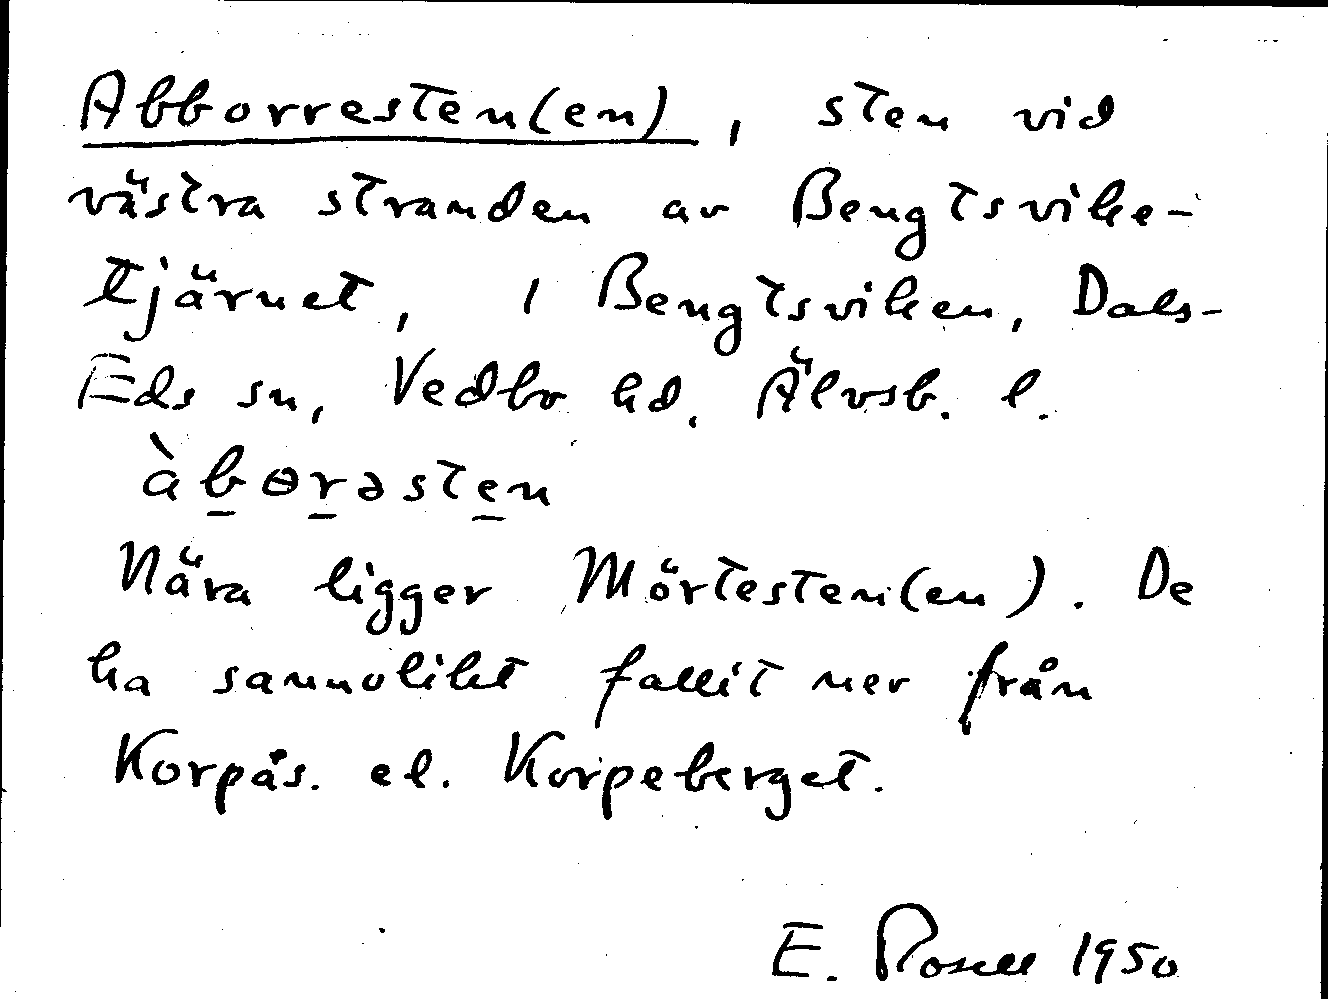 Abborresten(en), sten vid
västra stranden av Bengtsvike-
tjärnet, 1 Bengtsviken, Dals-
Eds sn, Vedbo hd. Älvsb. l.
àb̠ɵr̠əste̠n
Nära ligger Mörtesten(en). De
ha sannolikt fallit ner från
Korpås. el. Korpeberget.
E. Rosell 1950